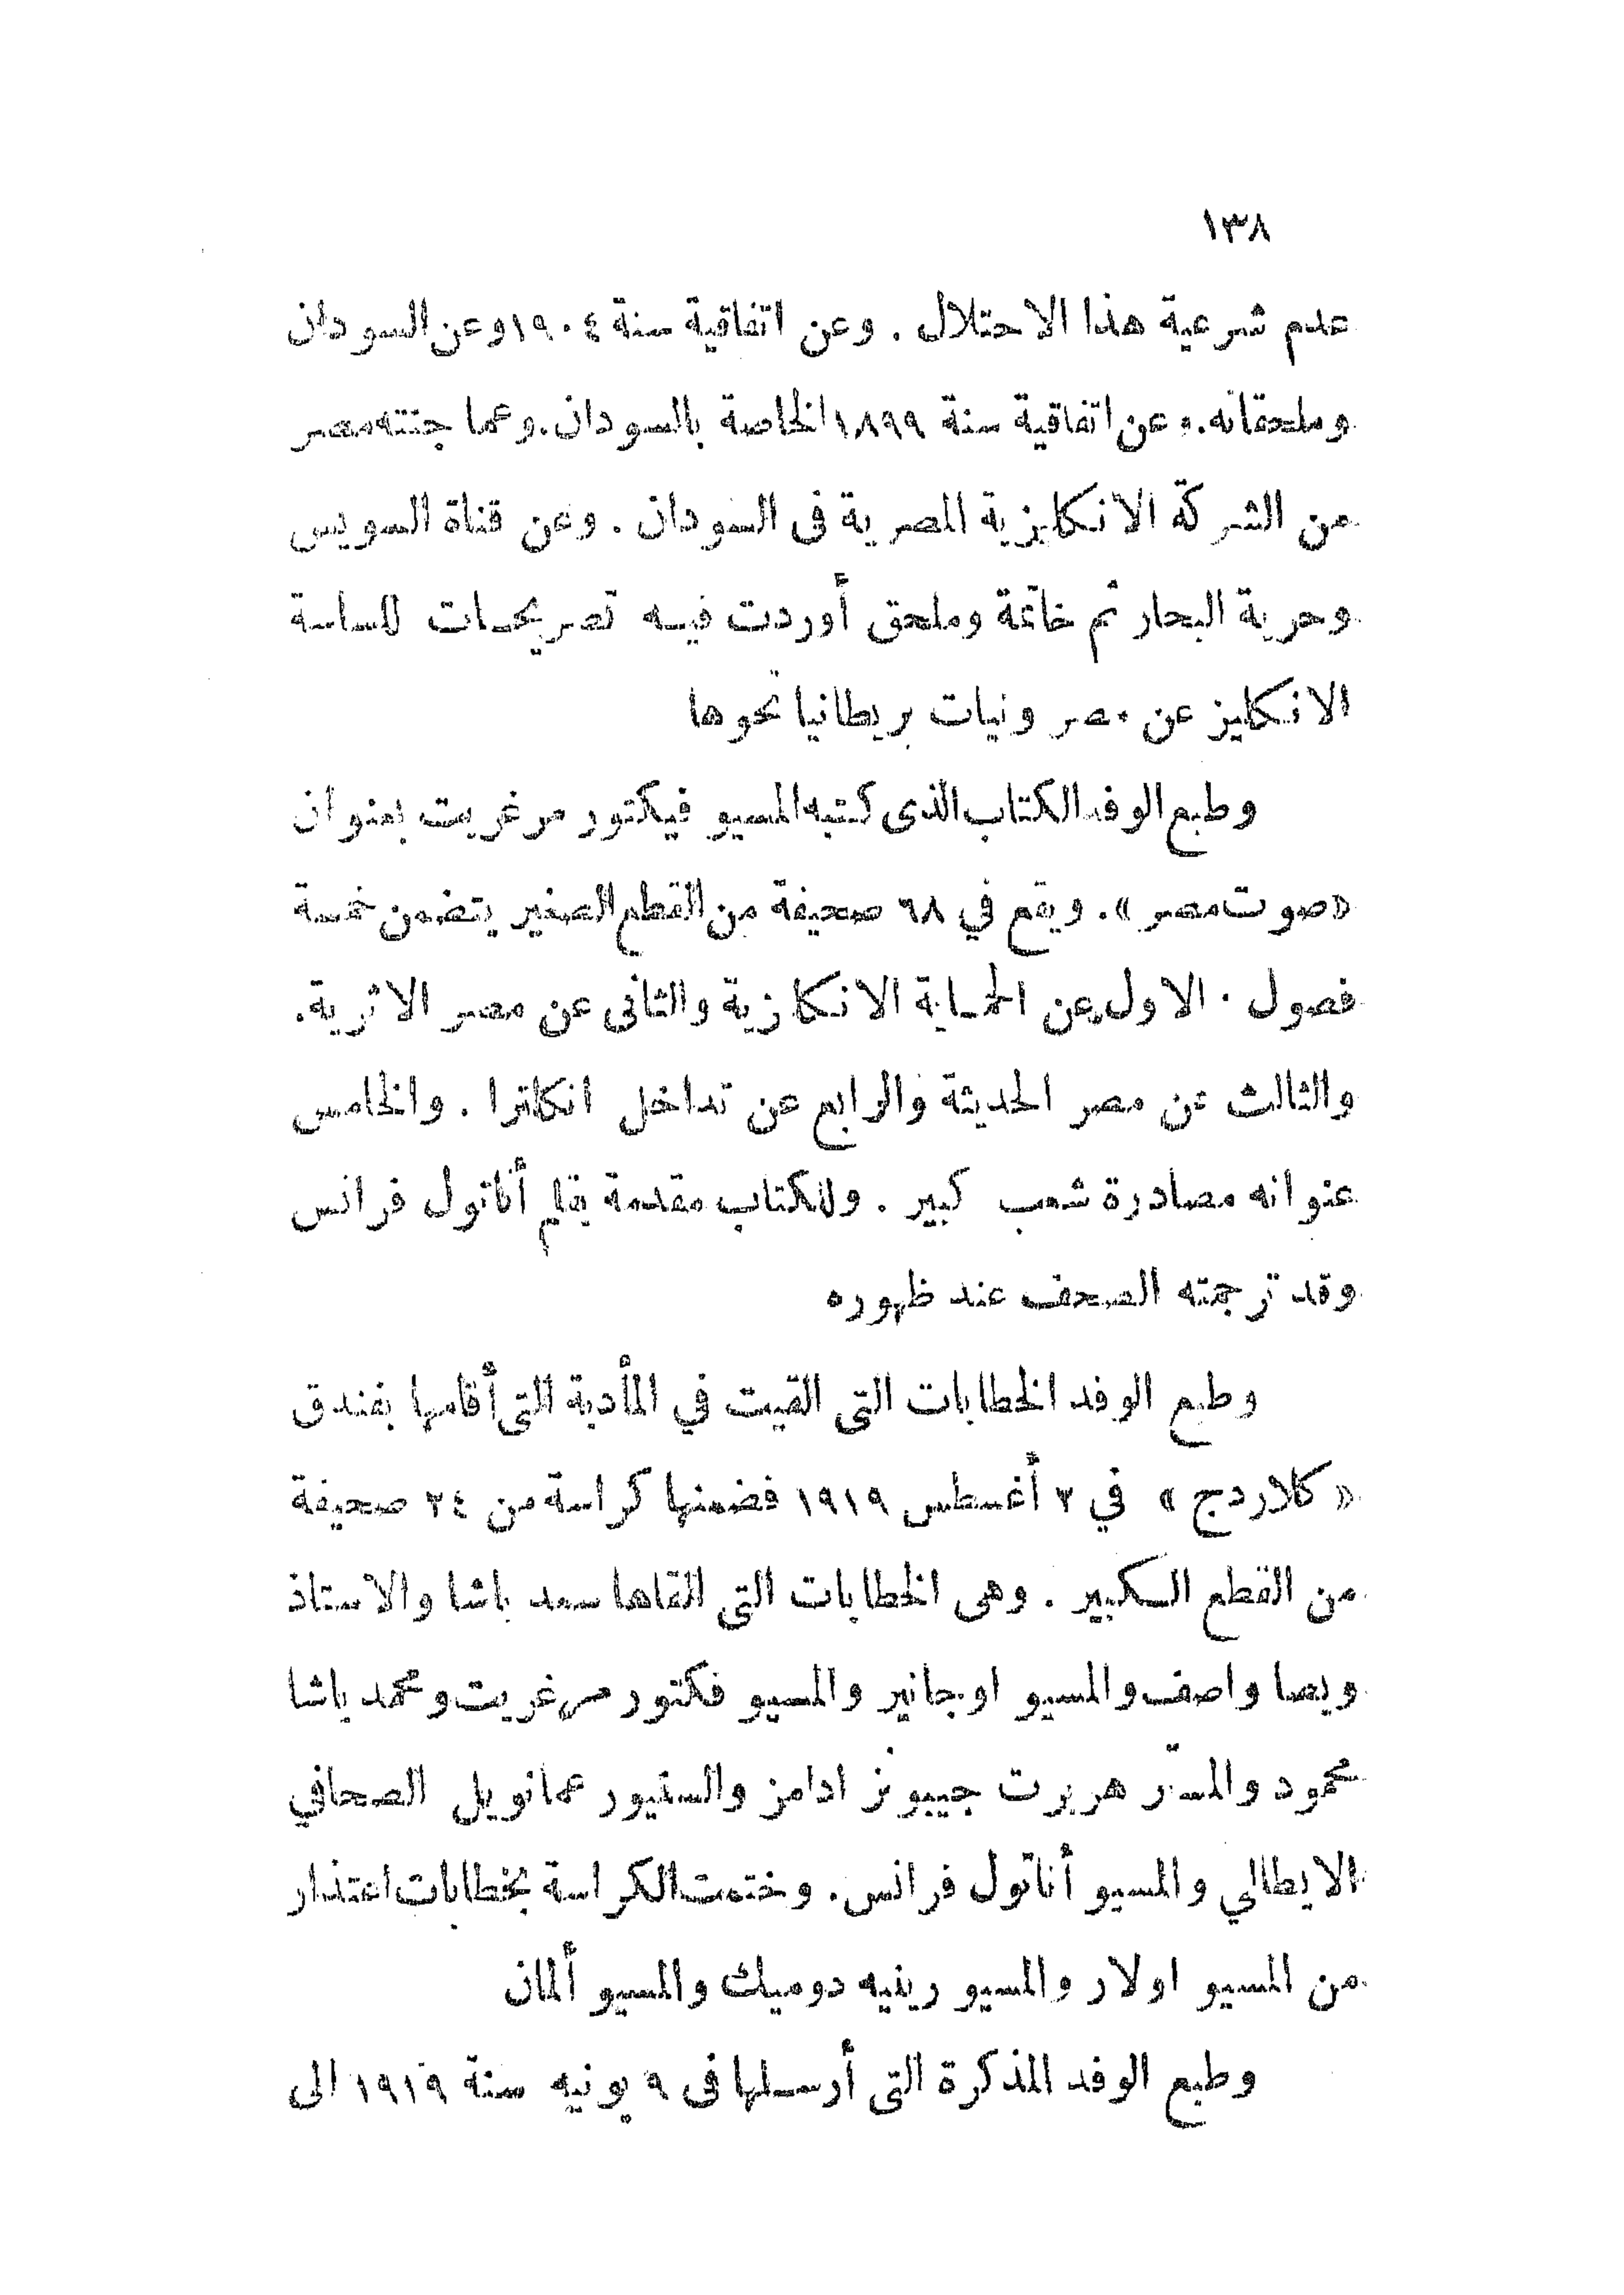 ١٣٨
عدم شرعية هذا الاحتلال . وعن اتفاقية سنة ١٩٠٤ وعن السودان
وملحقاته . وعن اتفاقية سنة ١٨٩٩ الخاصة بالسودان . وعما جنته مصر
من الشركة الانكليزية المصرية فى السودان . وعن قناة السويس
وحرية البحار ثم خاتمة وملحق أوردت فيه تصريحات للساسة
الانكليز عن مصر ونيات بريطانيا نحوها
وطبع الوفد الكتاب الذى كتبه المسيو فيكتور مرغريت بعنوان
«صوت مصر» . ويقع في ٦٨ صحيفة من القطع الصغير يتضمن خمسة
فصول . الاول عن الحماية الانكليزية والثانى عن مصر الاثرية .
والثالث عن مصر الحديثة والرابع عن تداخل انكلترا . والخامس
عنوانه مصادرة شعب كبير . وللكتاب مقدمة بقلم أناتول فرانس
وقد ترجمته الصحف عند ظهوره
وطبع الوفد الخطابات التى القيت في المأدبة التى أقامها بفندق
« كلاردج » في ٢ أغسطس ١٩١٩ فضمنها كراسة من ٢٤ صحيفة
من القطع الكبير . وهى الخطابات التى القاها سعد باشا والاستاذ
ويصا واصف والمسيو اوجانير والمسيو فكتور مرغريت ومحمد باشا
محمود والمستر هربرت جيبونز ادامز والسنيور عمانويل الصحافي
الايطالي والمسيو أناتول فرانس . وختمت الكراسة بخطابات اعتذار
من المسيو اولار والمسيو رينيه دوميك والمسيو ألمان
وطبع الوفد المذكرة التى أرسلها فى ٩ يونيه سنة ١٩١٩ الى